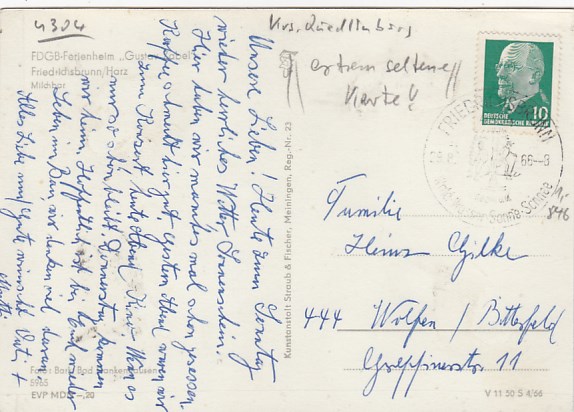 4304
FDGB-Ferienheim „Gustav
Friedrichsbrunn/Harz
Milchbar
Krs. Quedlinburg
extrem seltene
Karte!
10
DEUTSCHE
DEMOKRATISCHE REPUBLIK
FRIEDRICHSBRUNN
66-8
Sonne - Schnee
846
Unsere Lieben! Heute zum Sonntag
wieder herrliches Wetter Sonnenschein.
Hier haben wir manches mal schon gesessen.
Kaffee schmeckt hier gut. Gestern Abend waren wir
zum Konzert, heute Abend Kino. Wenn es
nur so schön bleibt. Donnerstag kommen
wir heim. Hoffentlich ist bei Euch wieder
Leben im Bau, wir denken viel daran.
Alles Liebe und Gute wünscht Vati +
Mutti.
Kunstanstalt Straub & Fischer, Meiningen, Reg.-Nr. 23
Familie
Heinz Gilke
444 Wolfen / Bitterfeld
Greppinerstr. 11
Foto: Barth, Bad Frankenhausen
5965
EVP MDN -,20
V 11 50 S 4/66